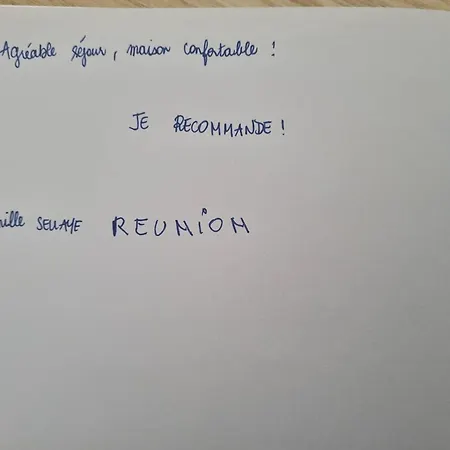 Agréable séjour, maison confortable !
JE RECOMMANDE !
ille SELLAYE REUNION